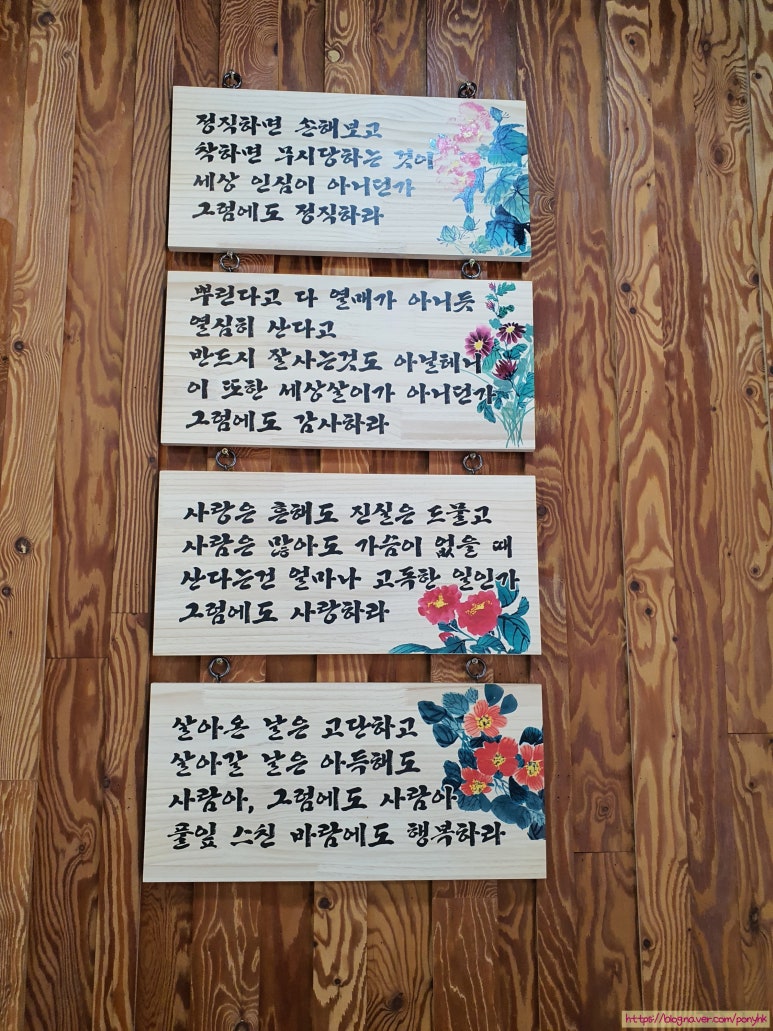 정직하면 손해보고
착하면 무시당하는 것이
세상 인심이 아니던가
그럼에도 정직하라
뿌린다고 다 열매가 아니듯
열심히 산다고
반드시 잘사는것도 아닐테니
이 또한 세상살이가 아니던가
그럼에도 감사하라
사랑은 흔해도 진실은 드물고
사람은 많아도 가슴이 없을 때
산다는건 얼마나 고독한 일인가
그럼에도 사랑하라
살아온 날은 고단하고
살아갈 날은 아득해도
사람아, 그럼에도 사람아
풀잎 스친 바람에도 행복하라
https://blog.naver.com/ponyhk